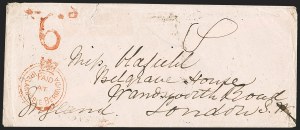 6
PAID
Miss Oldfield
Belgrave House
Wandsworth Road
England London S.W